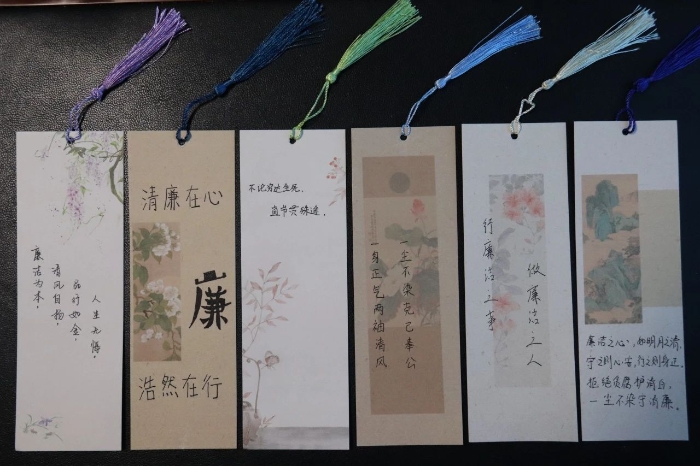 廉洁为本，
清风自扬，
品行如金，
人生无悔。
清廉在心
廉
浩然在行
不论穷达生死，
直节贯殊途。
一尘不染克己奉公
一身正气两袖清风
做廉洁之人
行廉洁之事
廉洁之心，如明月之清，
守之则心安，行之则身正。
拒绝贪腐护清白，
一尘不染守清廉。